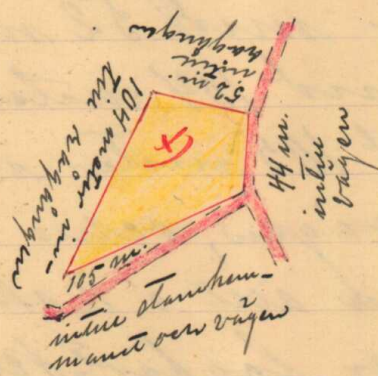 52 m.
intill
rågången
104 meter in-
till rågången
44 m.
intill
vägen
105 m.
intill stamhem-
manet och vägen